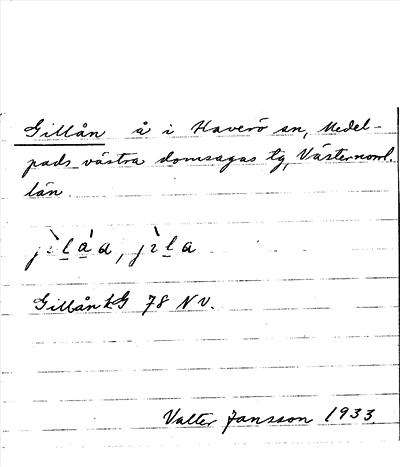 Gillån å i Haverö sn, Medel-
pads västra domsagas tg, Västernorrl.
län
Gillån kG 78 NV.
Valter Jansson 1933.